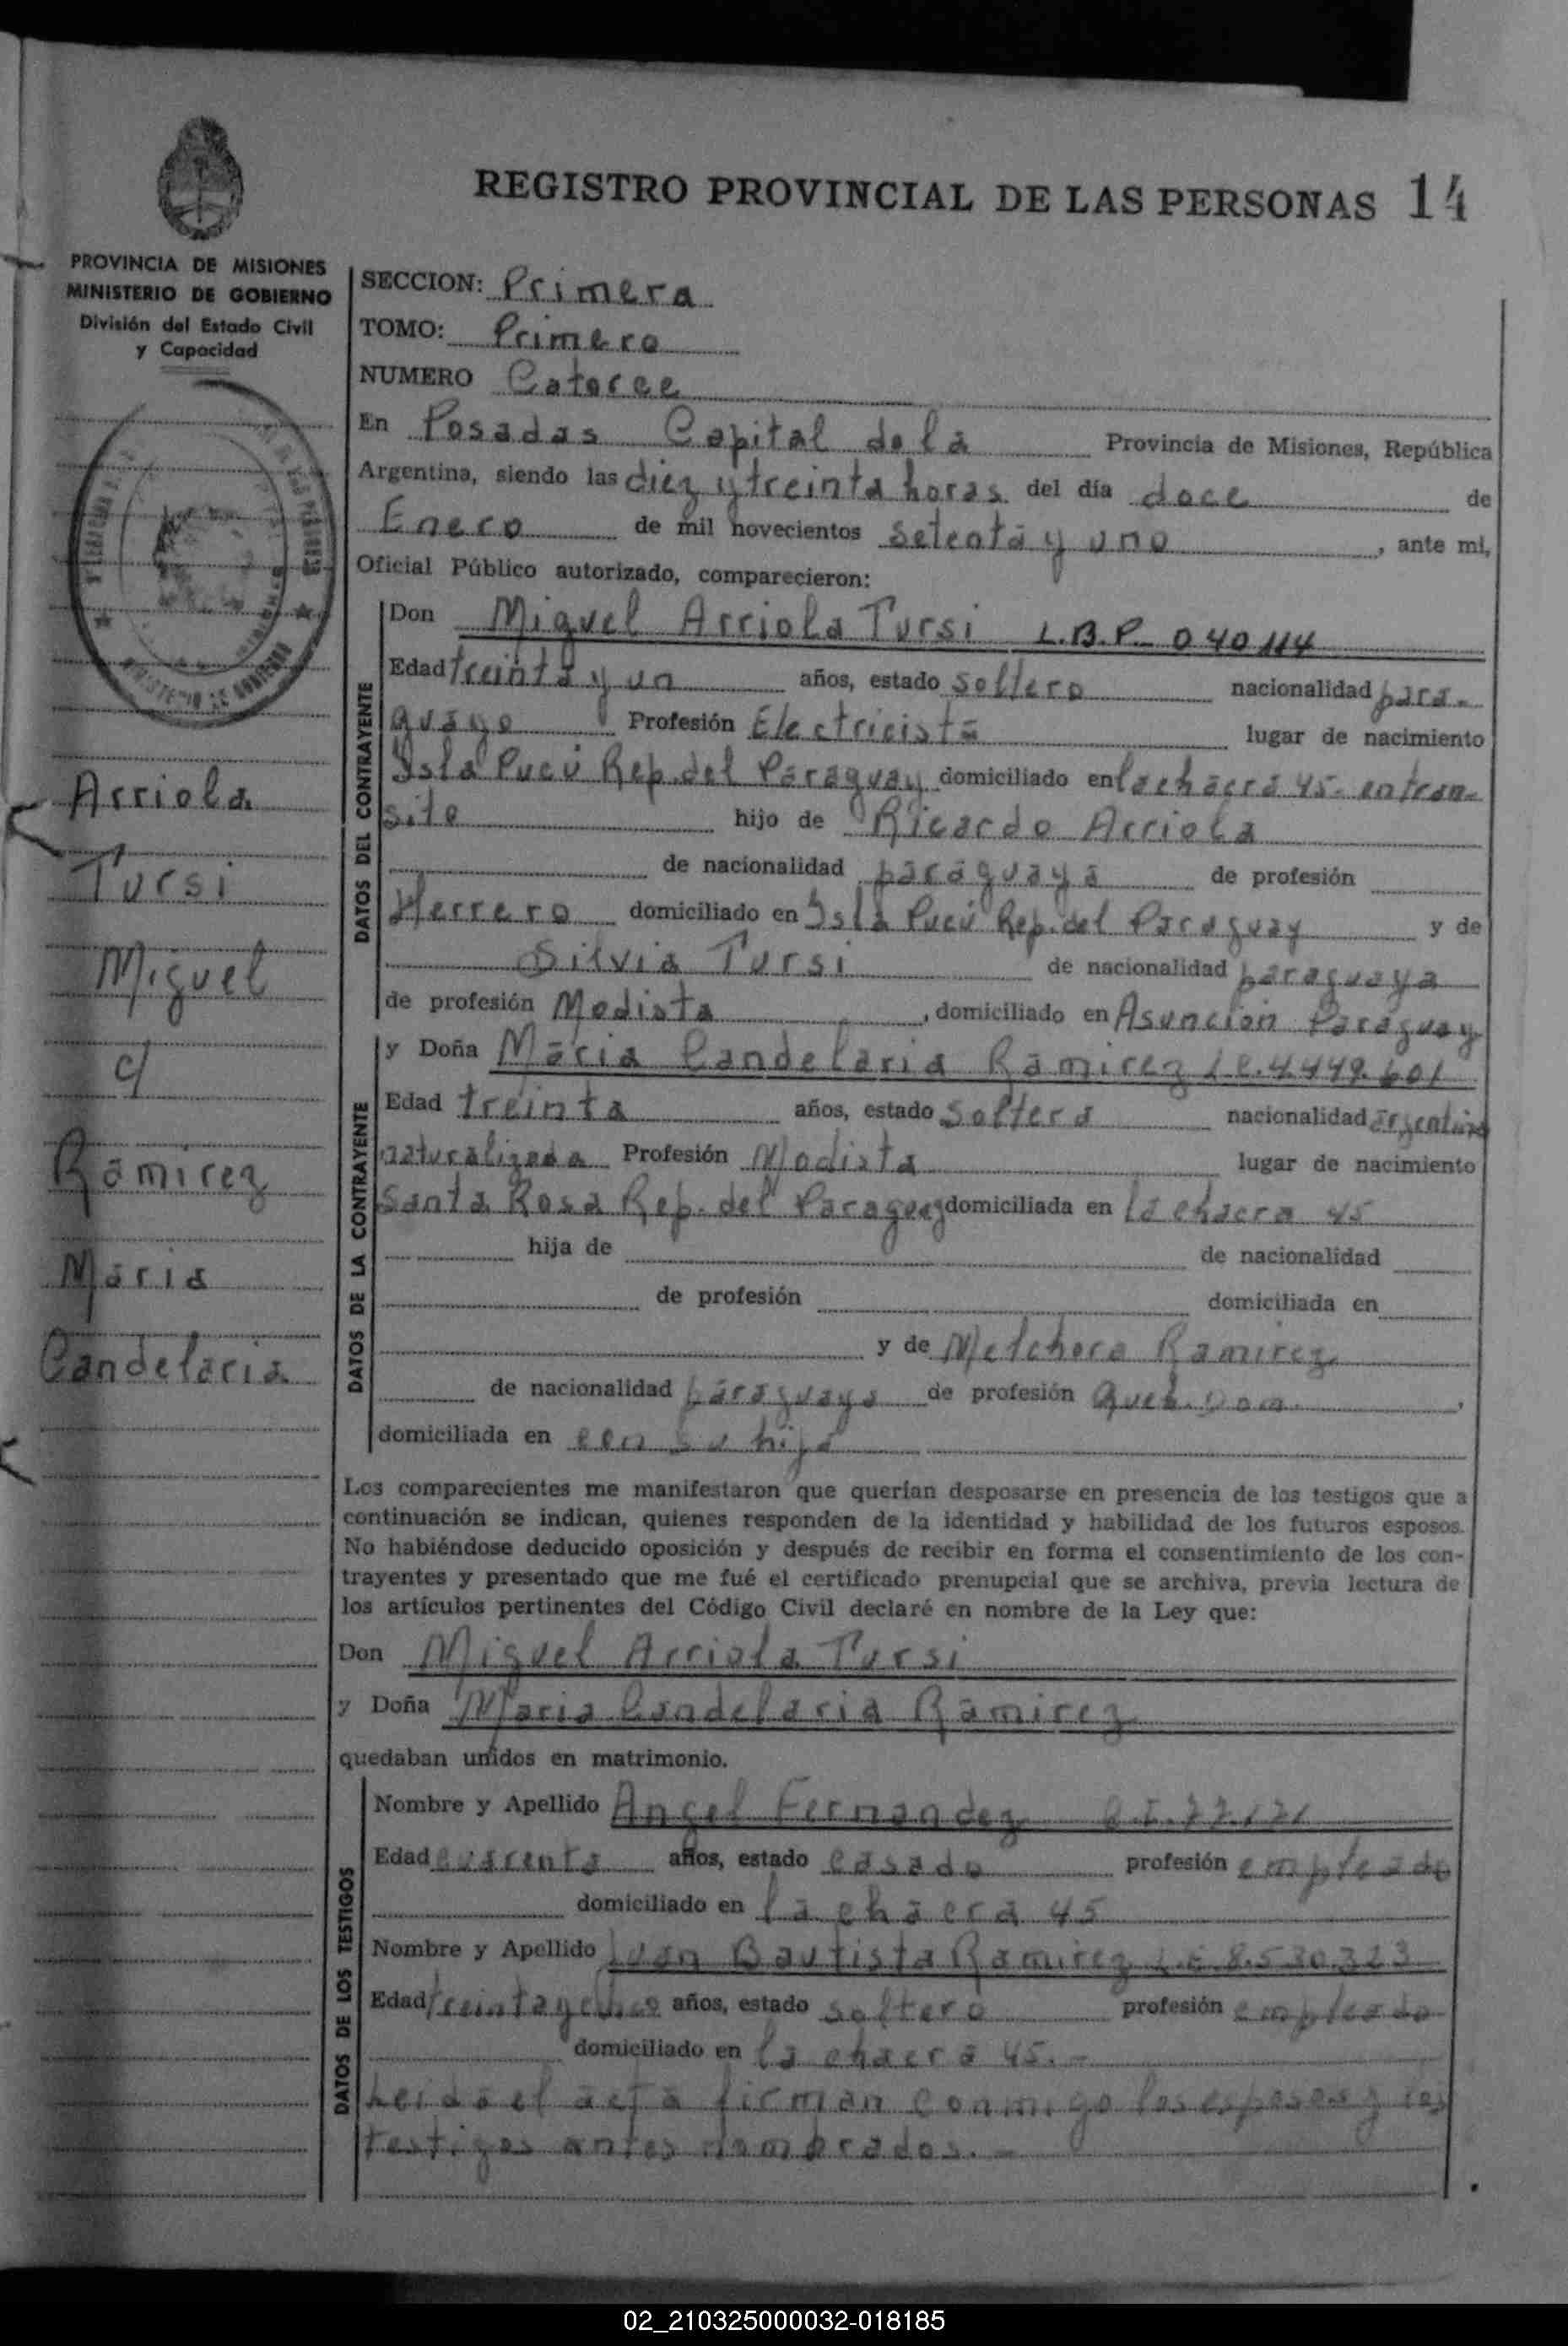 REGISTRO PROVINCIAL DE LAS PERSONAS 14
PROVINCIA DE MISIONES
MINISTERIO DE GOBIERNO
División del Estado Civil
y Capacidad
Arriola
Tursi
Miguel
c/
Ramirez
Maria
Candelaria
SECCION: Primera
TOMO: Primero
NUMERO Catorce
En Posadas Capital de la Provincia de Misiones, República
Argentina, siendo las diez y treinta horas del día doce de
Enero de mil novecientos setenta y uno, ante mi,
Oficial Público autorizado, comparecieron:
DATOS DEL CONTRAYENTE
Don Miguel Arriola Tursi L.B.P. 040114
Edad treinta y un años, estado soltero nacionalidad para-
guayo Profesión Electricista lugar de nacimiento
Isla Pucú Rep. del Paraguay domiciliado en la chacra 45- en tran-
sito hijo de Ricardo Arriola
de nacionalidad paraguaya de profesión
Herrero domiciliado en Isla Pucú Rep. del Paraguay y de
Silvia Tursi de nacionalidad paraguaya
de profesión Modista, domiciliado en Asunción Paraguay
DATOS DE LA CONTRAYENTE
y Doña Maria Candelaria Ramirez L.C. 4.449.601
Edad treinta años, estado soltera nacionalidad argentina
naturalizada Profesión Modista lugar de nacimiento
Santa Rosa Rep. del Paraguay domiciliada en la chacra 45
hija de de nacionalidad
de profesión domiciliada en
y de Melchora Ramirez
de nacionalidad paraguaya de profesión Queh. Dom.,
domiciliada en con su hija
Los comparecientes me manifestaron que querían desposarse en presencia de los testigos que a
continuación se indican, quienes responden de la identidad y habilidad de los futuros esposos.
No habiéndose deducido oposición y después de recibir en forma el consentimiento de los con-
trayentes y presentado que me fué el certificado prenupcial que se archiva, previa lectura de
los artículos pertinentes del Código Civil declaré en nombre de la Ley que:
Don Miguel Arriola Tursi
y Doña Maria Candelaria Ramirez
quedaban unidos en matrimonio.
DATOS DE LOS TESTIGOS
Nombre y Apellido Angel Fernandez
Edad cuarenta años, estado casado profesión empleado
domiciliado en la chacra 45
Nombre y Apellido Juan Bautista Ramirez L.E. 8.530.323
Edad treinta y años, estado soltero profesión empleado
domiciliado en la chacra 45.-
Leida el acta firman conmigo los esposos y los
testigos antes nombrados.-
02_210325000032-018185